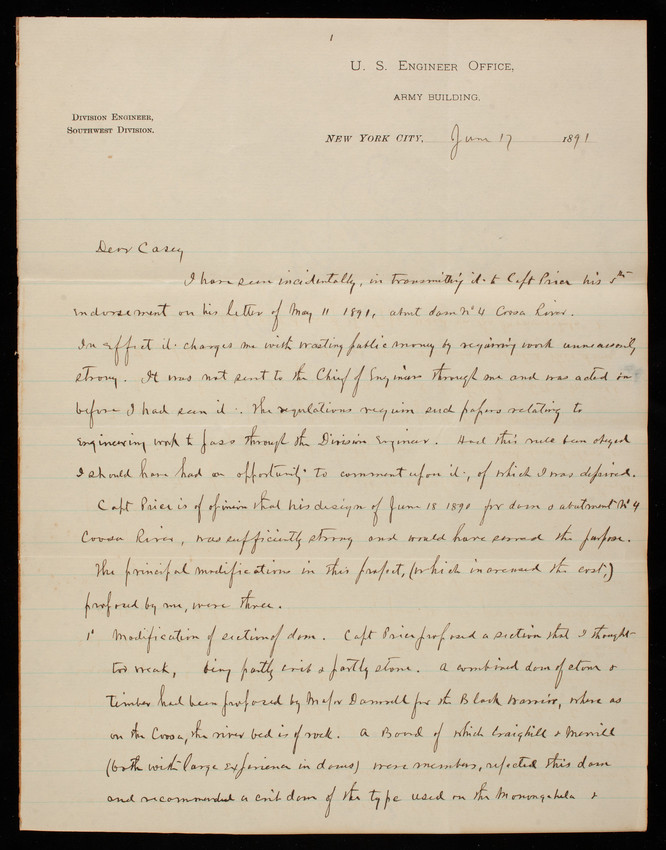 1
U. S. Engineer Office,
ARMY BUILDING.
Division Engineer,
Southwest Division.
NEW YORK CITY, June 17 1891
Dear Casey
I have seen incidentally, in transmitting it to Capt Price his 5th
endorsement on his letter of May 11 1891, about dam No 4 Coosa River.
In effect it charges me with wasting public money by requiring work unnecessarily
strong. It was not sent to the Chief of Engineers through me and was acted on
before I had seen it. The regulations require such papers relating to
engineering work to pass through the Division Engineer. Had this rule been obeyed
I should have had an opportunity to comment upon it, of which I was deprived.
Capt Price is of opinion that his design of June 18 1890 for dam & abutment No 4
Coosa River, was sufficiently strong and would have served the purpose.
The principal modifications in this project, (which increased the cost,)
proposed by me, were three.
1st Modification of section of dam. Capt Price proposed a section that I thought
too weak, being partly crib & partly stone. A combined dam of stone &
timber had been proposed by Major Damrell for the Black Warrior, where as
on the Coosa, the river bed is of rock. A Board of which Craighill & Merrill
(both with large experience in dams) were members, rejected this dam
and recommended a crib dam of the type used on the Monongahela &